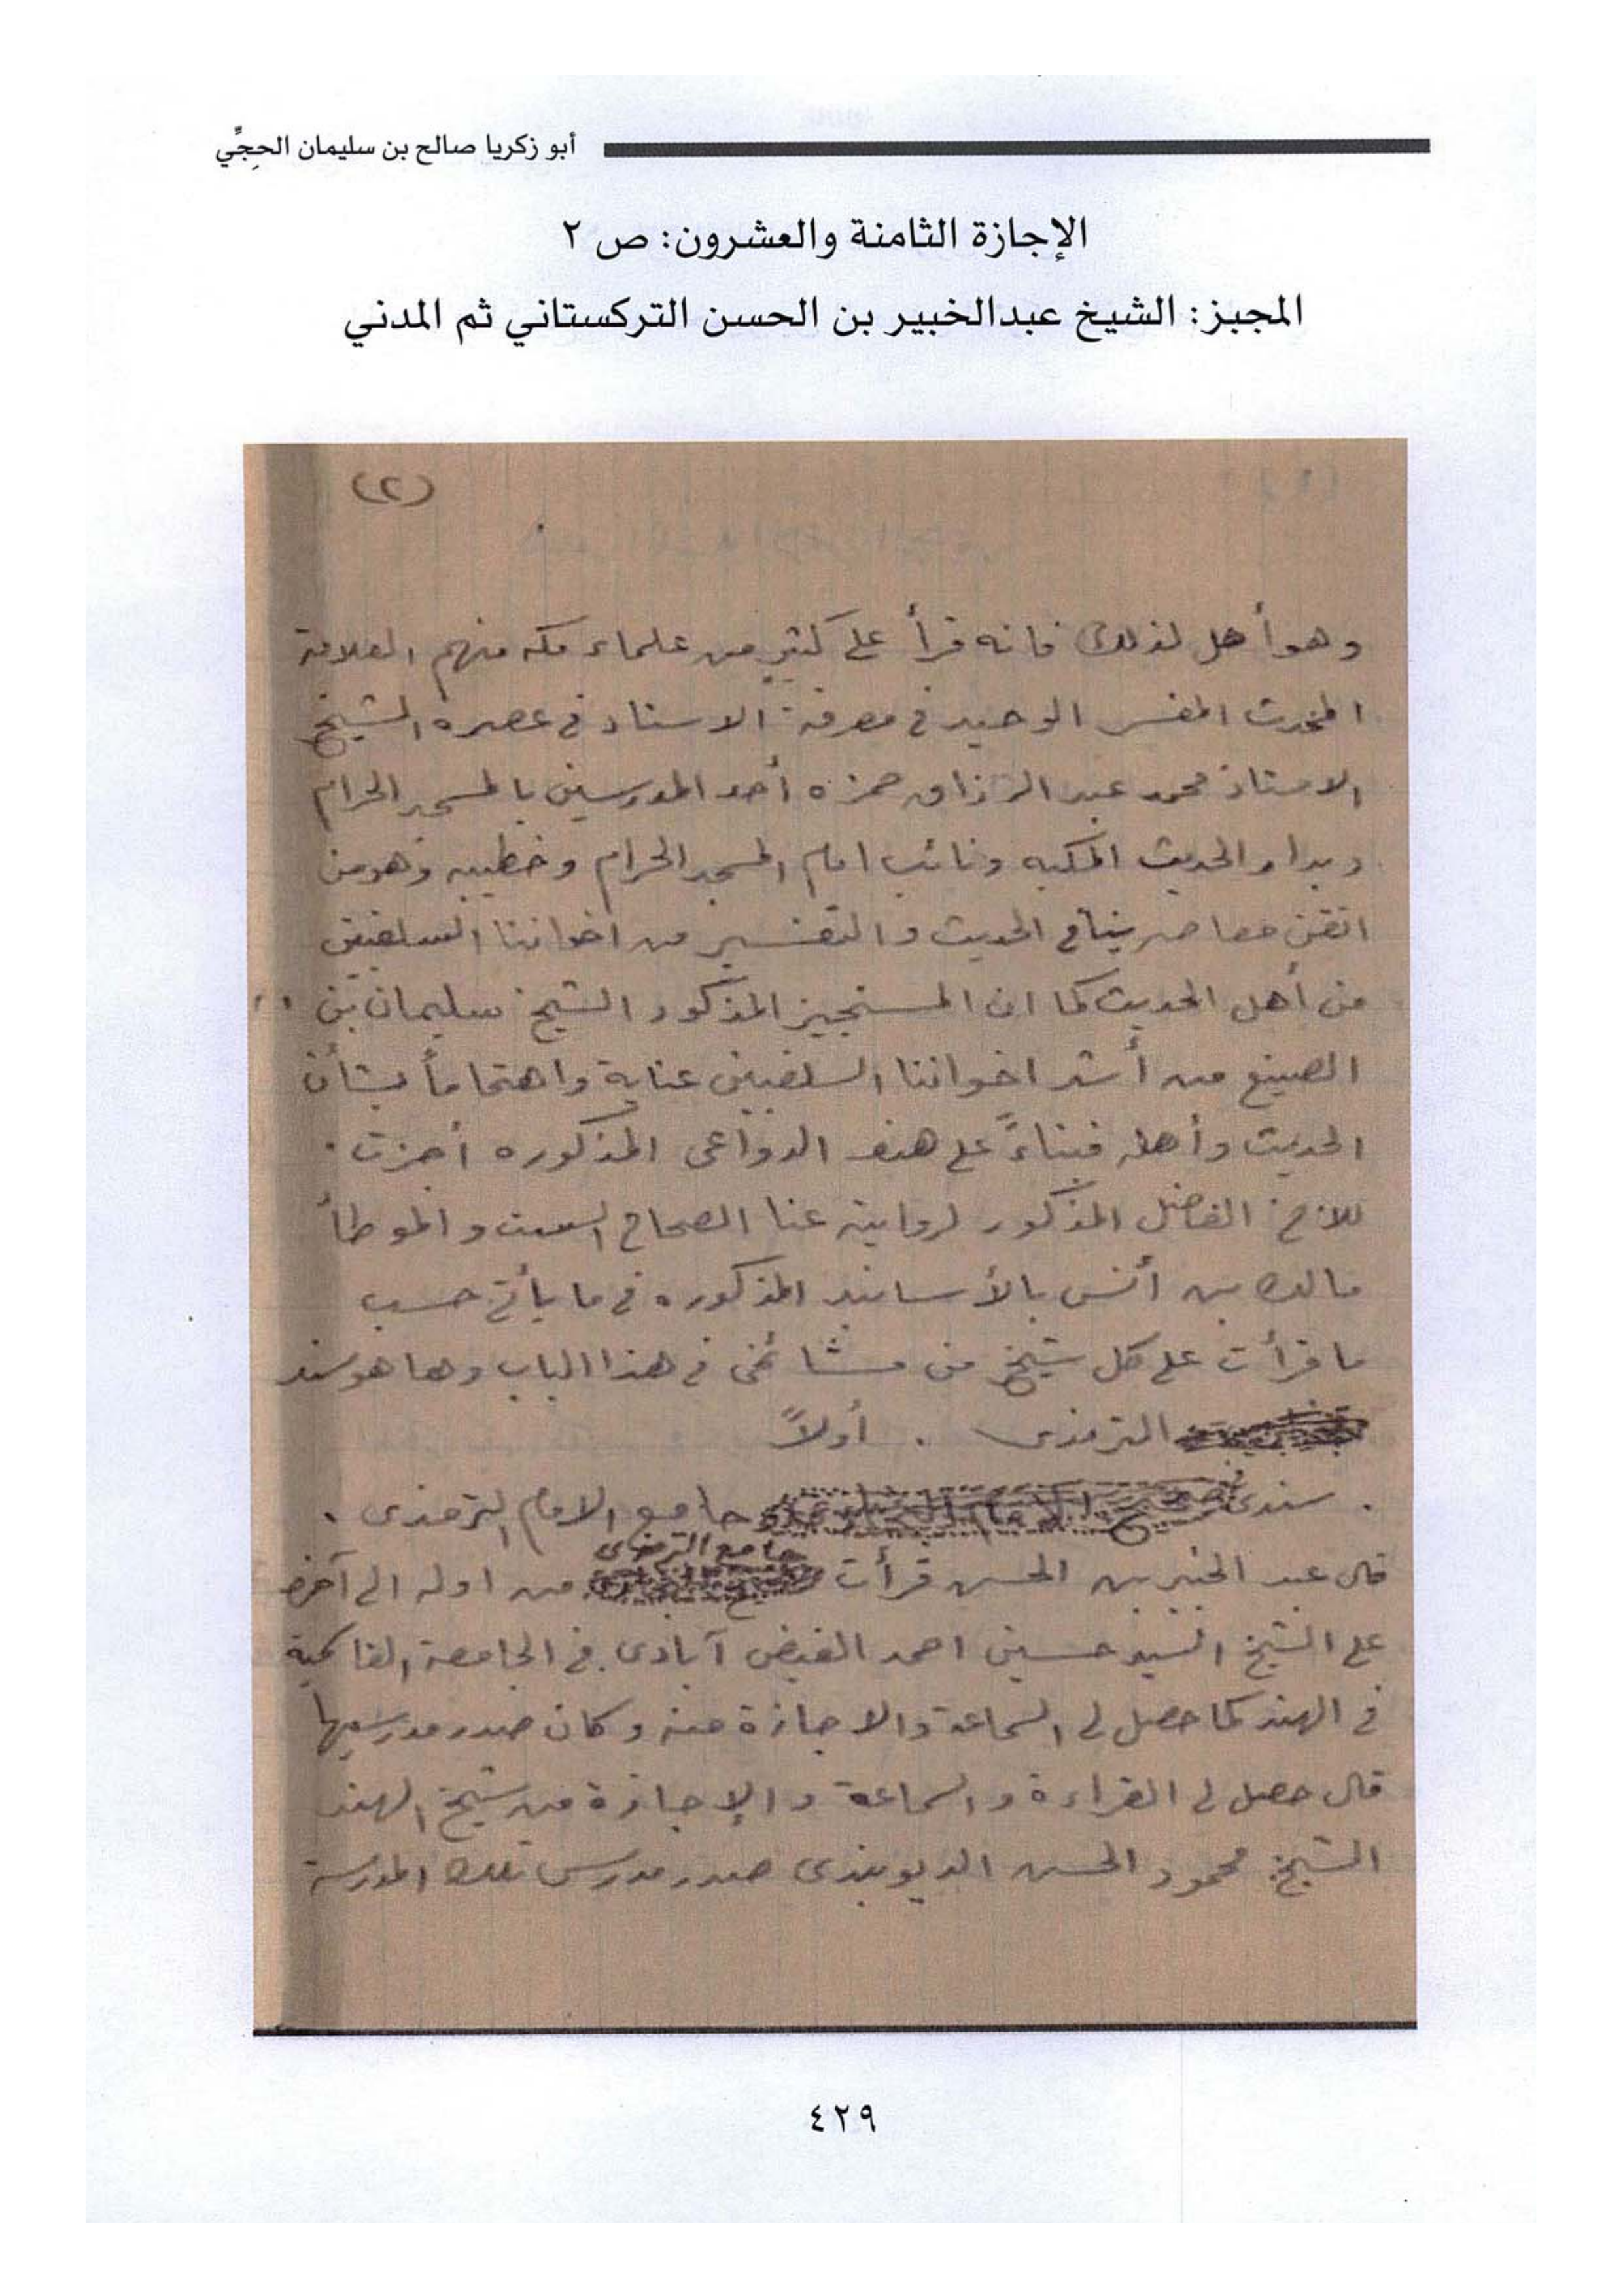 أبو زكريا صالح بن سليمان الحجِّي
الإجازة الثامنة والعشرون: ص ٢
المجيز: الشيخ عبدالخبير بن الحسن التركستاني ثم المدني
(٢)
وهو أهل لذلك فانه قرأ على كثير من علماء مكه منهم العلامة
المحدث المفسر الوحيد في معرفة الاسناد في عصره الشيخ
الاستاذ محمد عبد الرزاق حمزه أحد المدرسين بالمسجد الحرام
وبدار الحديث المكيه ونائب امام المسجد الحرام وخطيبه وهو من
اتقن معاصرينا في الحديث والتفسير من اخواننا السلفيين
من أهل الحديث كما ان المستجيز المذكور الشيخ سليمان بن
الصنيع من أشد اخواننا السلفيين عناية واهتماماً بشأن
الحديث وأهله فبناءً على هذه الدواعى المذكوره أجزت
للاخ الفاضل المذكور لرواية عنا الصحاح الست والموطأ
مالك بن أنس بالأسانيد المذكوره في ما يأتي حسب
ما قرأت على كل شيخ من مشائخي في هذا الباب وها هو سند
الترمذى . أولاً
. سندى جامع الامام الترمذى .
جامع الترمذى
قال عبد الخبير بن الحسن قرأت من اوله الى آخره
على الشيخ السيد حسين احمد الفيض آبادى في الجامعة القاسمية
في الهند كما حصل لى السماعة والاجازة منه وكان صدر مدرسيها
قال حصل لى القراءة والسماعة والإجازة من شيخ الهند
الشيخ محمود الحسن الديوبندى صدر مدرس تلك المدرسة
٤٢٩